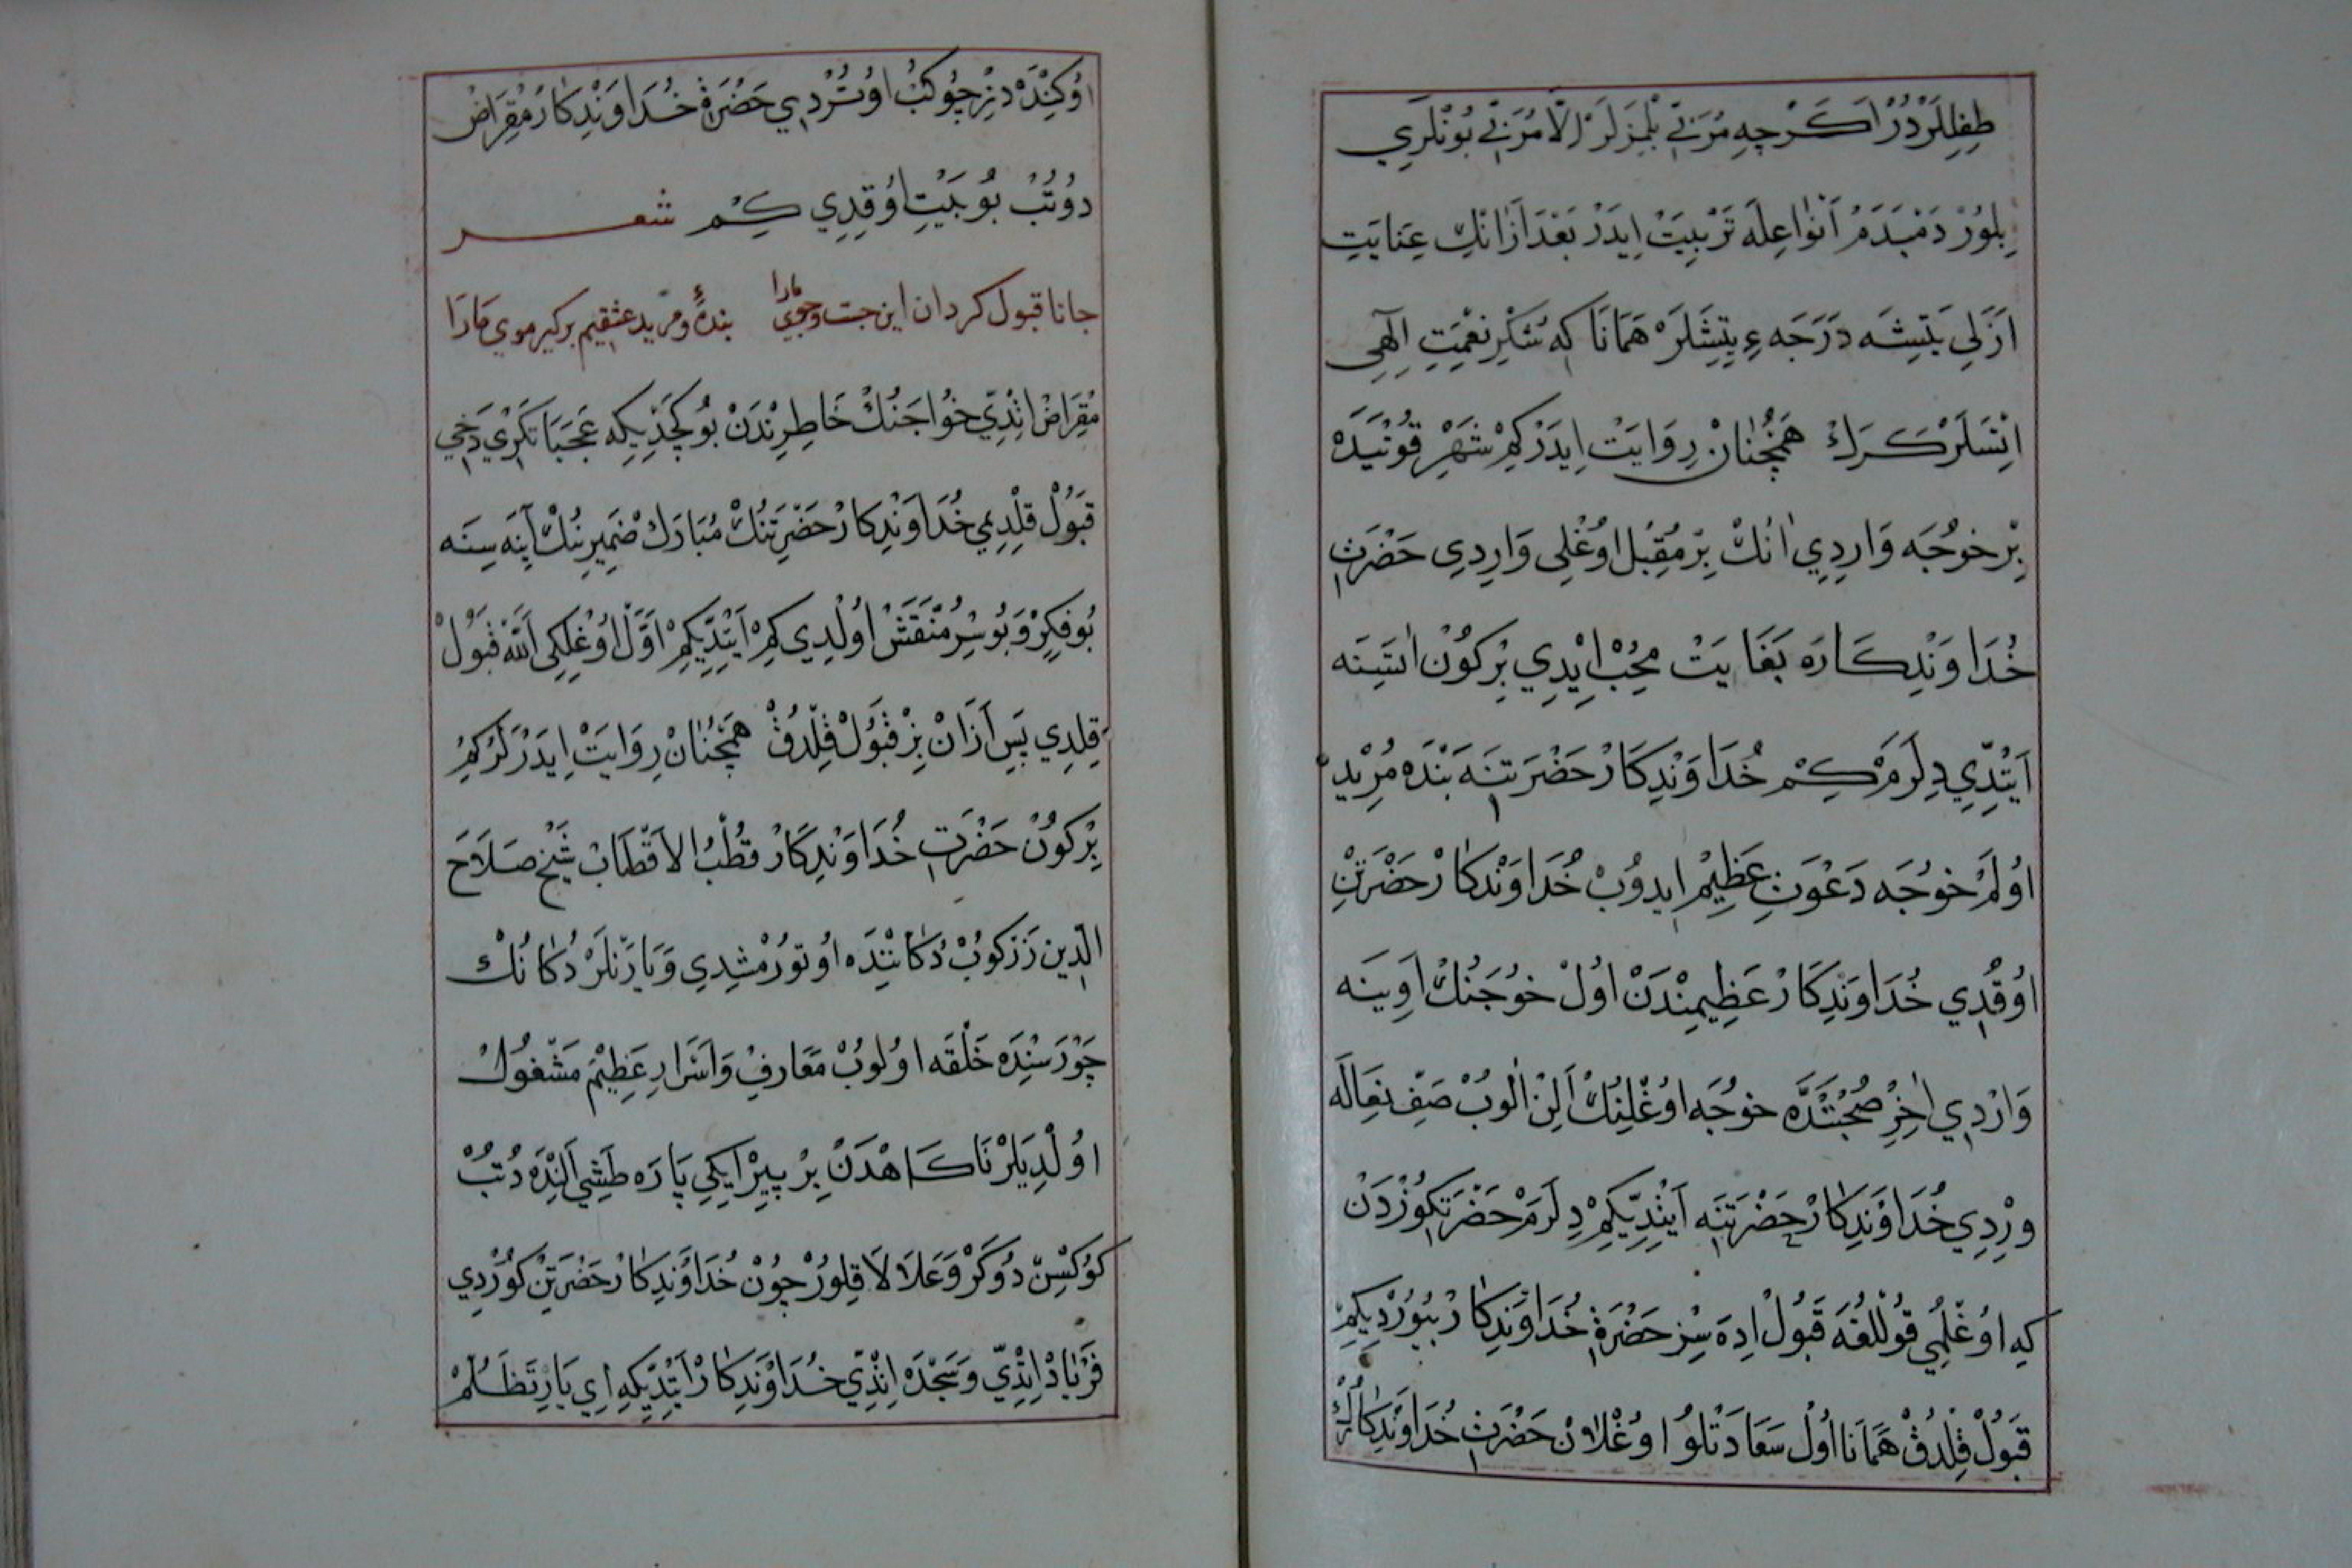 طِفِللَرْدُرْ اَكَرْچِه مُرَبّيِ بِلْمَزلَرْ اِلَّا مُرَبّيِ بُونْلَرَي
بِلوُرْ دَمْبَدَمْ اَنْوٰاعِلَه تَرْبِيَتْ اِيدَرْ بَعْدَ اَزْانْكِ عِنَايَتِ
اَزَلِي يَتِشَه دَرَجَهءِ يِتِشَلَرْ هَمَانَا كِه شُكْرِ نِعْمَتِ اِلٓهِي
اِتْسَلَرْ كَرَكْ هَمْچُنٰانْ رِوَايَتْ اِيدَرْ كِمْ شَهْرِ قُونْيَدَه
بِرْ خوُجَه وَارِدِي اٰنُكْ بِرْ مُقْبِلْ اوُغْلِي وَارِدِي حَضْرَتِ
خُدَاوَنْدِكَارَه بَغَايَتْ مُحِبْ اِيْدِي بِرْكوُنْ اٰتَسِنَه
اَيْتدِّي دِلَرَمْ كِمْ خُدَاوَنْدِكَارْ حَضْرَتِنَه بَنْدَه مُرِيْدْ
اوُلَمْ خوُجَه دَعْوَتِ عَظِيْمْ اِيدوُبْ خُدَاوَنْدِكَارْ حَضْرَتِنْ
اوُقُدِي خُدَاوَنْدِكَارْ عَظِيمِنْدَنْ اوُلْ خوُجَنُكْ اَوِينَه
وَارْدِي اٰخِرِ صُحْبَتْدَّه خوُجَه اوُغْلِنُكْ اَلِنْ اٰلوُبْ صَفِّ نِعَالَه
وِرْدِي خُدَاوَنْدِكَارْ حَضْرَتِنَه اَيْتدِّيكِمْ دِلَرَمْ حَضْرَتِكوُزْدَنْ
كِه اوُغْلِمِي قوُللُغَه قَبُولْ اِدَه سِزْ حَضْرَةِ خُدَاوَنْدِكَارْ بُيُوُرْدِيكِمْ
قَبُولْ قِلْدُقْ هَمَانَا اوُلْ سَعَادَتْلوُ اوُغْلَانْ حَضْرَتِ خُدَاوَنْدِكَارُكْ
اوُكِنْدَه دِزْ چوُكُبْ اوُتُرْدِي حَضْرَةِ خُدَاوَنْدِكَارْ مُقِرَاضْ
دوُتُبْ بوُ بَيْتِ اوُقِدِي كِمْ شعر
جانا قبول كردان اين جست وجوي مارا بندهٔ ومريد عشقيم بركير موي مارَا
مُقِرَاضْ اِتْدِّي خوُاجَنُكْ خَاطِرِنْدَنْ بوُ كَچْدِيكِه عَجَبَا تَكْرِي دَخِي
قَبُولْ قِلْدِمِي خُدَاوَنْدِكَارْ حَضْرَتِنُكْ مُبَارَكْ ضَمِيرِنُكْ اٰيِنَه سِنَه
بوُ فِكِرْ وَبوُ سِرْ مُنَقَّشْ اوُلْدِي كِمْ اَيْتدِّيكِمْ اَوَّلْ اوُغْلِكِي اَللّٰه قَبُولْ
قِلْدِي پَسْ اَزَانْ بِزْ قَبُولْ قِلْدُقْ هَمْچُنٰانْ رِوَايَتْ اِيدَرْلَرْ كِمْ
بِرْكوُنْ حَضْرَتِ خُدَاوَنْدِكَارْ قُطْبُ الاَقْطَابْ شَيْخْ صَلَاحَ
الّدِين زَرَكوُبْ دُكَانِنْدَه اوُتوُرْمُشِدِي وَيَارَنْلَرْ دُكَانُكْ
چَوْرَسِنْدَه حَلْقَه اوُلوُبْ مَعَارِفْ وَاَسْرَارِ عَظِيْمْ مَشْغوُلْ
اوُلْدِيلَرْ نَاكَاهْدَنْ بِرْ پِيرْ اِيكِي پَارَه طَشِي اَلِنْدَه دُتُبْ
كوُكْسِنْ دوُكَرْ وَعَلَالَا قِلوُرْ چوُنْ خُدَاوَنْدِكَارْ حَضْرَتِنْ كوُرْدِي
فَرْيَادْ اِتْدِّي وَسَجْدَه اِتْدِّي خُدَاوَنْدِكَارْ اَيْتدِّيكِه اِي يَارِ تَظَلُّمْ